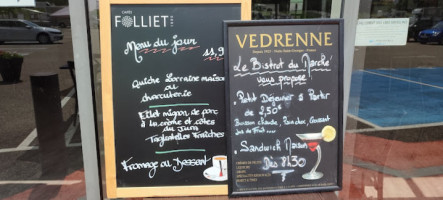 CAFÉS
FOLLIET
Menu du jour
Quiche Lorraine maison
ou
charcuterie
Filet mignon de porc
à la crème et côtes
du Jura
Tagliatelles Fraîches
Fromage ou Dessert
VEDRENNE
Le Bistrot du Marché
vous propose
Petit Déjeuner à Partir
de 2,50€
Boisson chaude, Pain choc, Croissant
Jus de Fruit....
Sandwich Maison
Dès 8h30